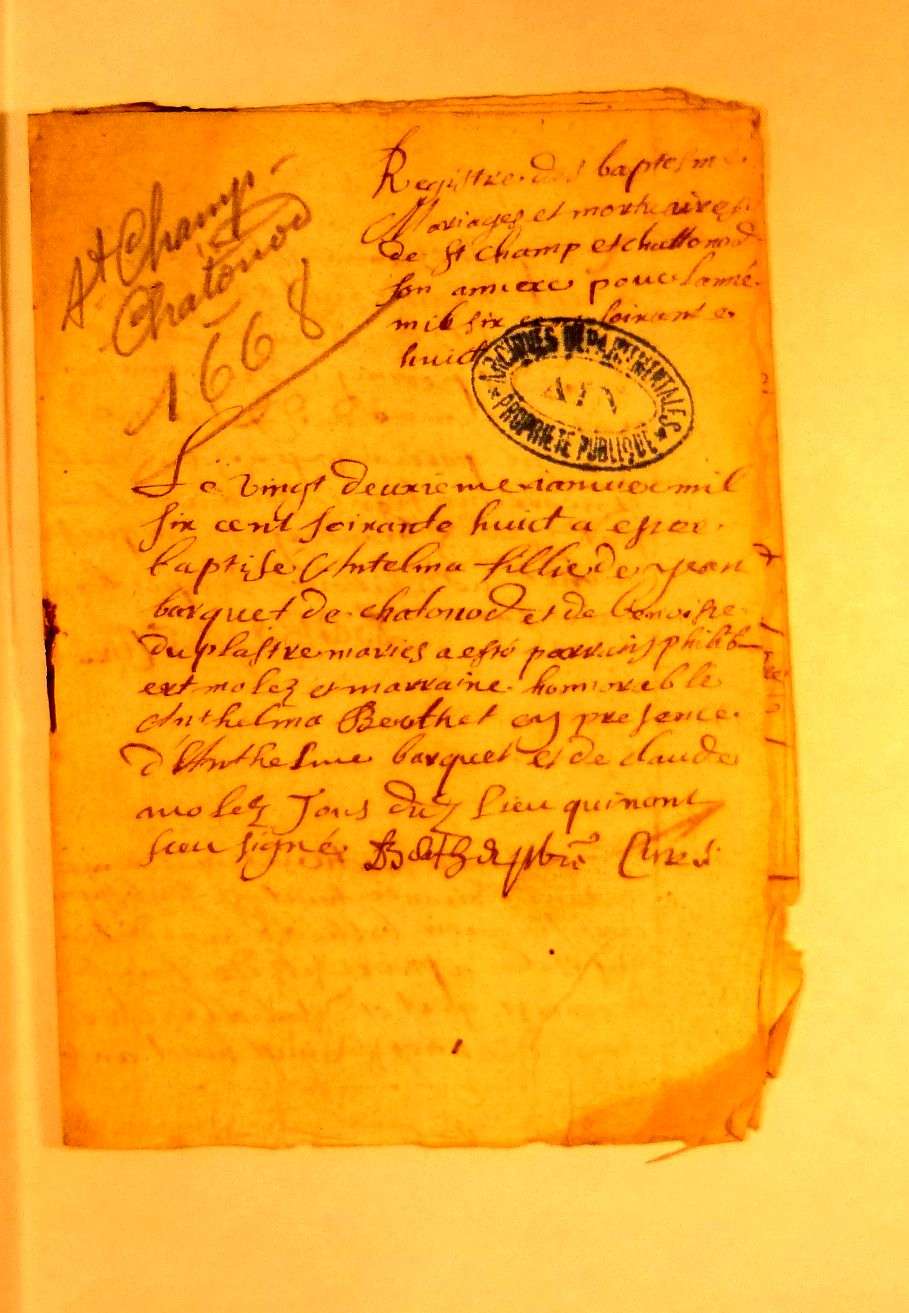 St Champ-
Chatonod
1668
Registre des baptesme
Mariages et mortuaires
de St Champ et chattonod
son annexe pour lanné
mil six soixante
huict
ARCHIVES DEPARTEMENTALES
AIN
PROPRIETE PUBLIQUE
Le vingt deuxieme ianvier mil
six cent soixante huict a ester
baptisé Antelma fillie de Jean
barquet de chatonod et de benoiste
du plastre maries a esté parrain philib
ert molez et marraine honnorable
Anthelma Berthet en presence
d'Anthelme barquet et de claude
molez Tous dud lieu qui n'ont
sceu signé. Berthet pbre Curé